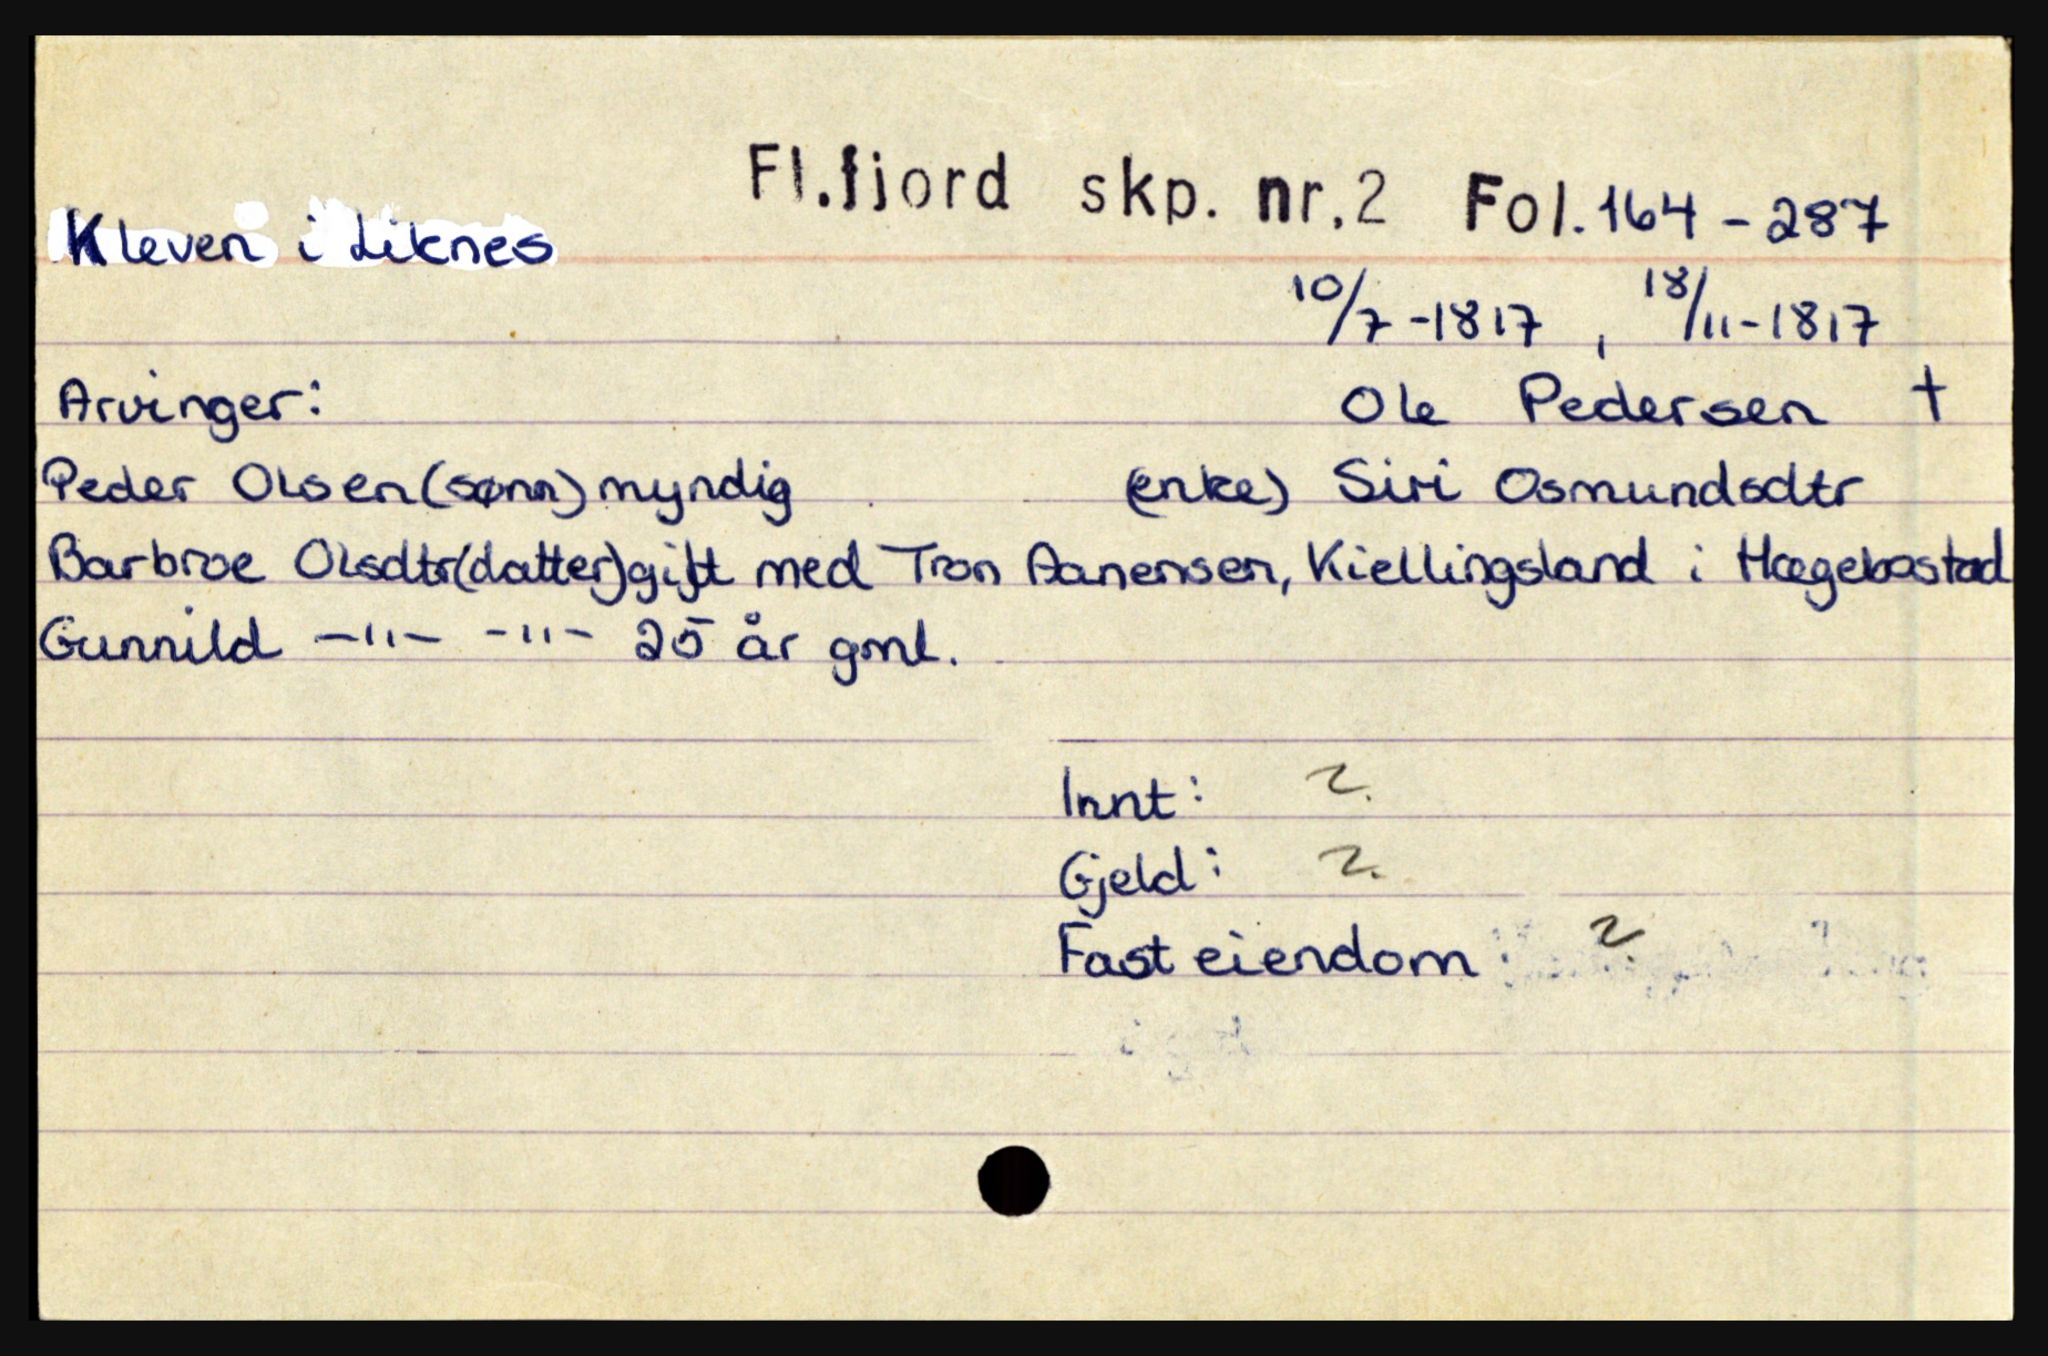 Fl.fjord skp. nr.2 Fol. 164 - 287
Kleven i Liknes
10/7 -1817 , 18/11-1817
Arvinger: Ole Pedersen †
Peder Olsen (sønn) myndig (enke) Siri Osmundsdtr
Barbroe Olsdtr (datter) gift med Tron Aanensen, Kiellingsland i Hægebostad
Gunnild -"- -"- 25 år gml.
Innt: ?
Gjeld: ?
Fast eiendom: ?